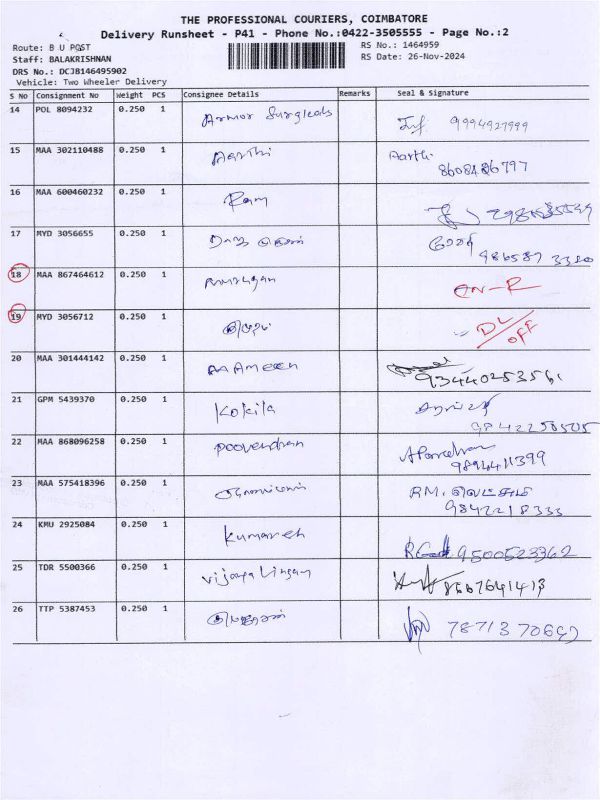 THE PROFESSIONAL COURIERS, COIMBATORE
Delivery Runsheet - P41 - Phone No.:0422-3505555 - Page No.:2
Route: B U POST
RS No.: 1464959
Staff: BALAKRISHNAN
RS Date: 26-Nov-2024
DRS No.: DCJB146495902
Vehicle: Two Wheeler Delivery
S No Consignment No Weight PCS Consignee Details Remarks Seal & Signature
14 POL 8094232 0.250 1 Armor Surgicals 9994927999
15 MAA 302110488 0.250 1 Aarthi Aarthi
8608486797
16 MAA 600460232 0.250 1 Ram
17 MYD 3056655 0.250 1
18 MAA 867464612 0.250 1 Murugan
19 MYD 3056712 0.250 1 DL/OFF
20 MAA 301444142 0.250 1 AAMEEN
21 GPM 5439370 0.250 1 Kokila
22 MAA 868096258 0.250 1 Poovendran
9894411399
23 MAA 575418396 0.250 1 RM.
9842218333
24 KMU 2925084 0.250 1 Kumaresh 9500523362
25 TDR 5500366 0.250 1 Vijaya Lingam 8667641413
26 TTP 5387453 0.250 1